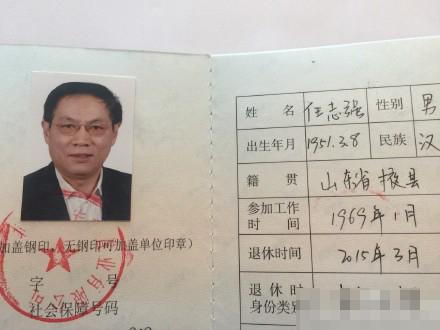 加盖钢印,无钢印可加盖单位印章)
字 号
社会保障号码
姓 名 任志强 性别 男
出生年月 1951.3.8 民族 汉
籍 贯 山东省掖县
参加工作时间 1969年1月
退休时间 2015年3月
退休时身份类别